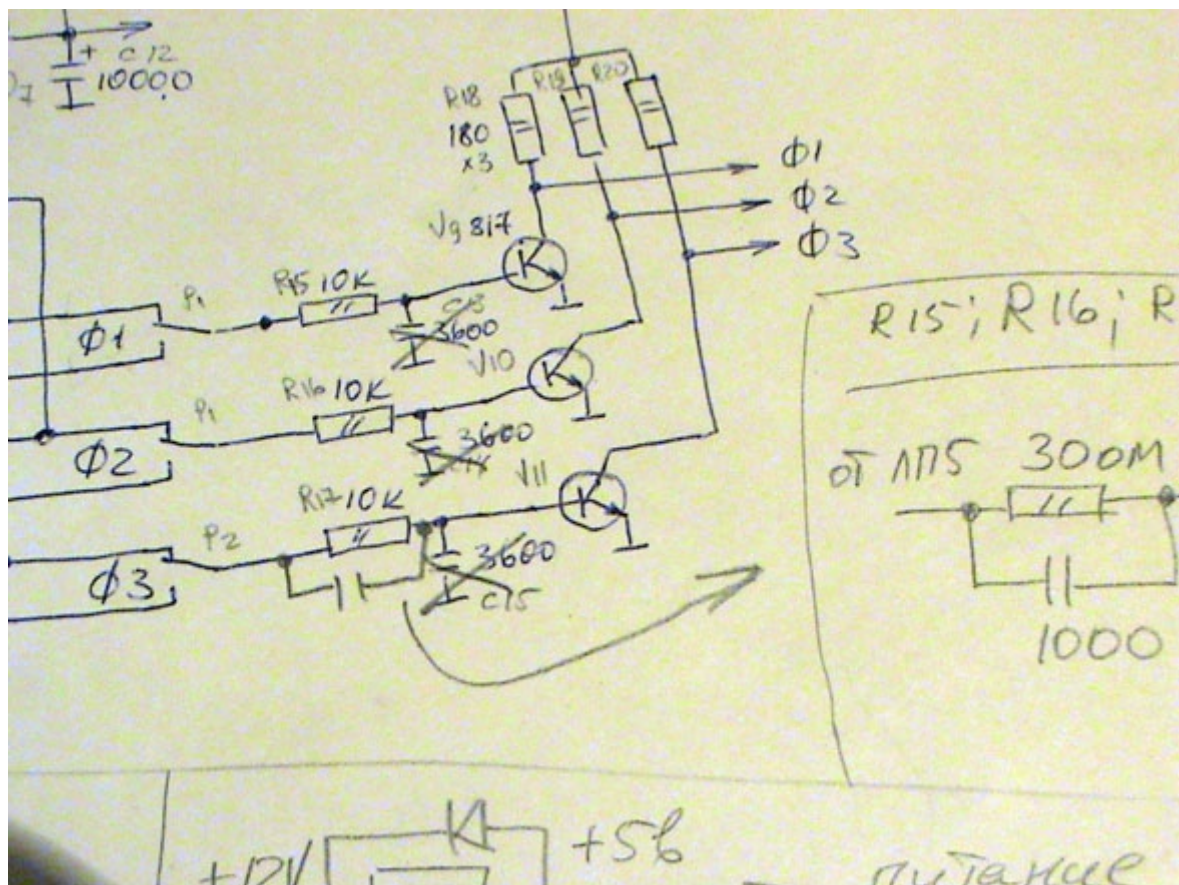 + C12
1000,0
R18
R19
R20
180
x3
Ф1
Ф2
Ф3
V9 817
P1
R15 10K
C13
3600
Ф1
V10
P1
R16 10K
3600
Ф2
V11
R17 10K
P2
3600
C15
Ф3
R15; R16; R
от ЛП5
300м
1000
+12V
+5в
питание